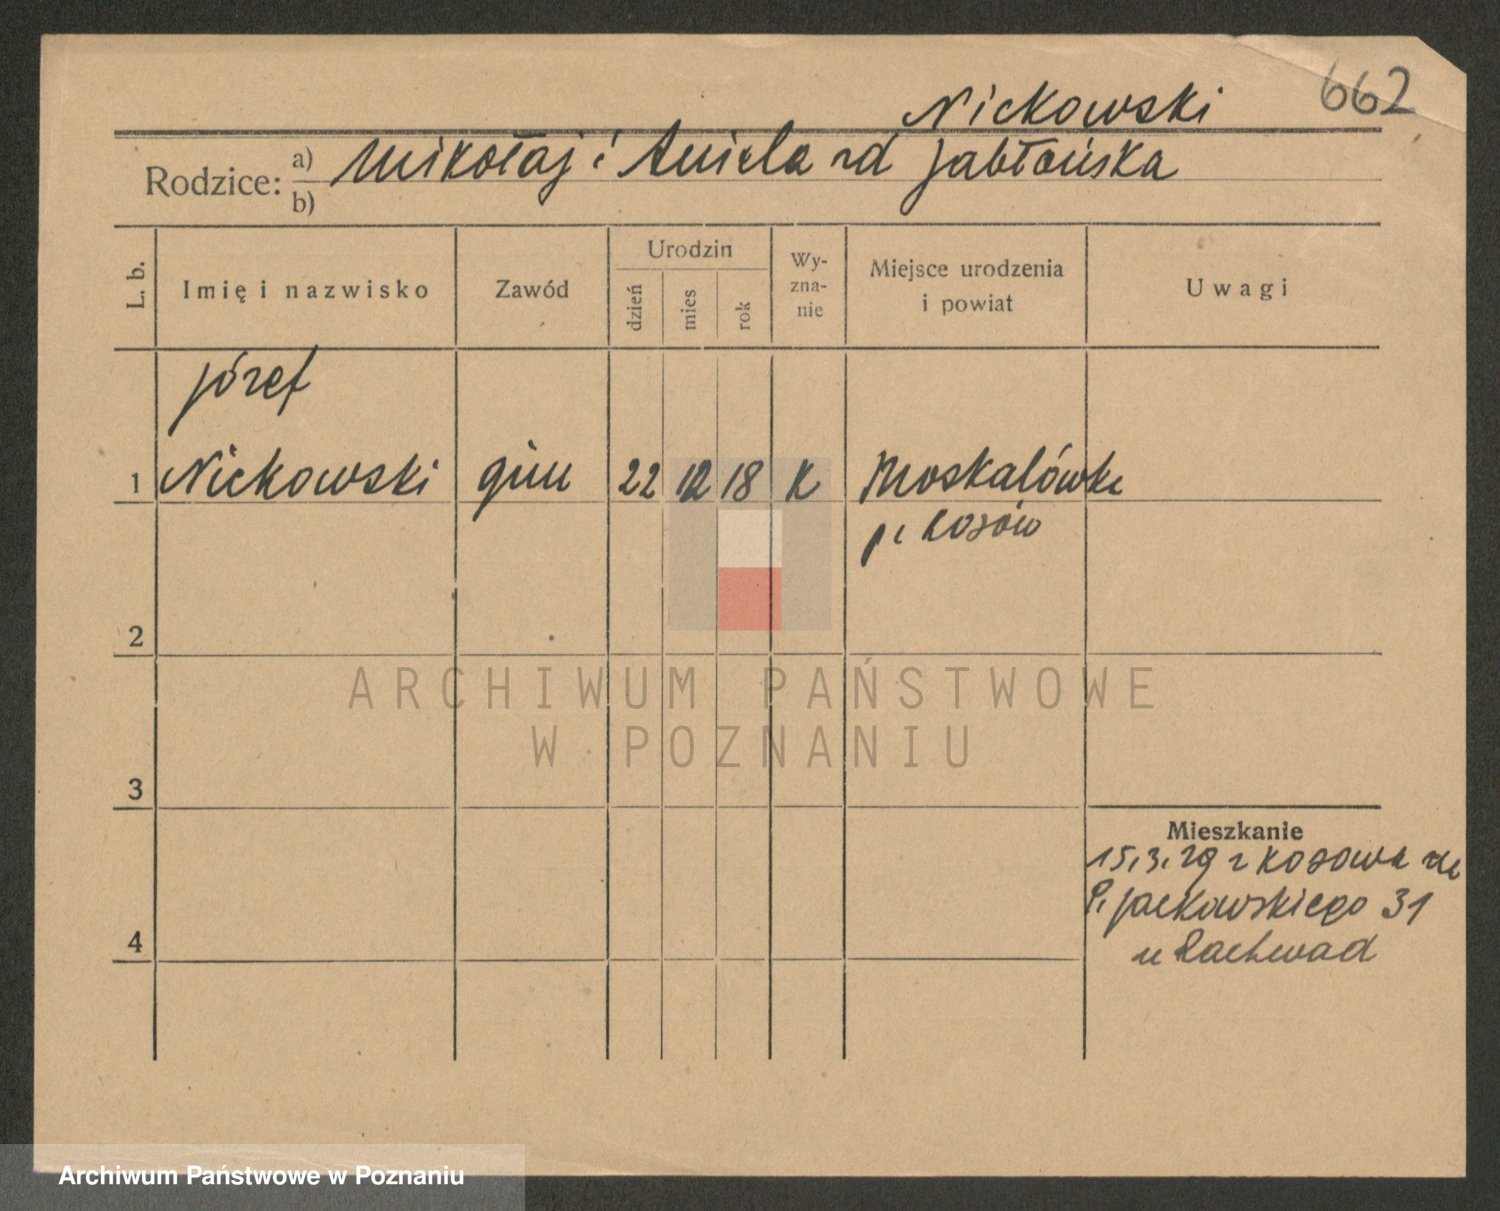 662
Nickowski
Rodzice: a) b) Mikołaj i Aniela zd Jabłońska
L. b.
Imię i nazwisko
Zawód
Urodzin
dzień
mies
rok
Wy-
zna-
nie
Miejsce urodzenia
i powiat
Uwagi
Józef
1 Nickowski gim 22 12 18 K Moskalówka
p. Kosów
2
ARCHIWUM PAŃSTWOWE
W POZNANIU
3
Mieszkanie
15.3.29 z Kosowa
P. Jackowskiego 31
4
u Rachwał
Archiwum Państwowe w Poznaniu